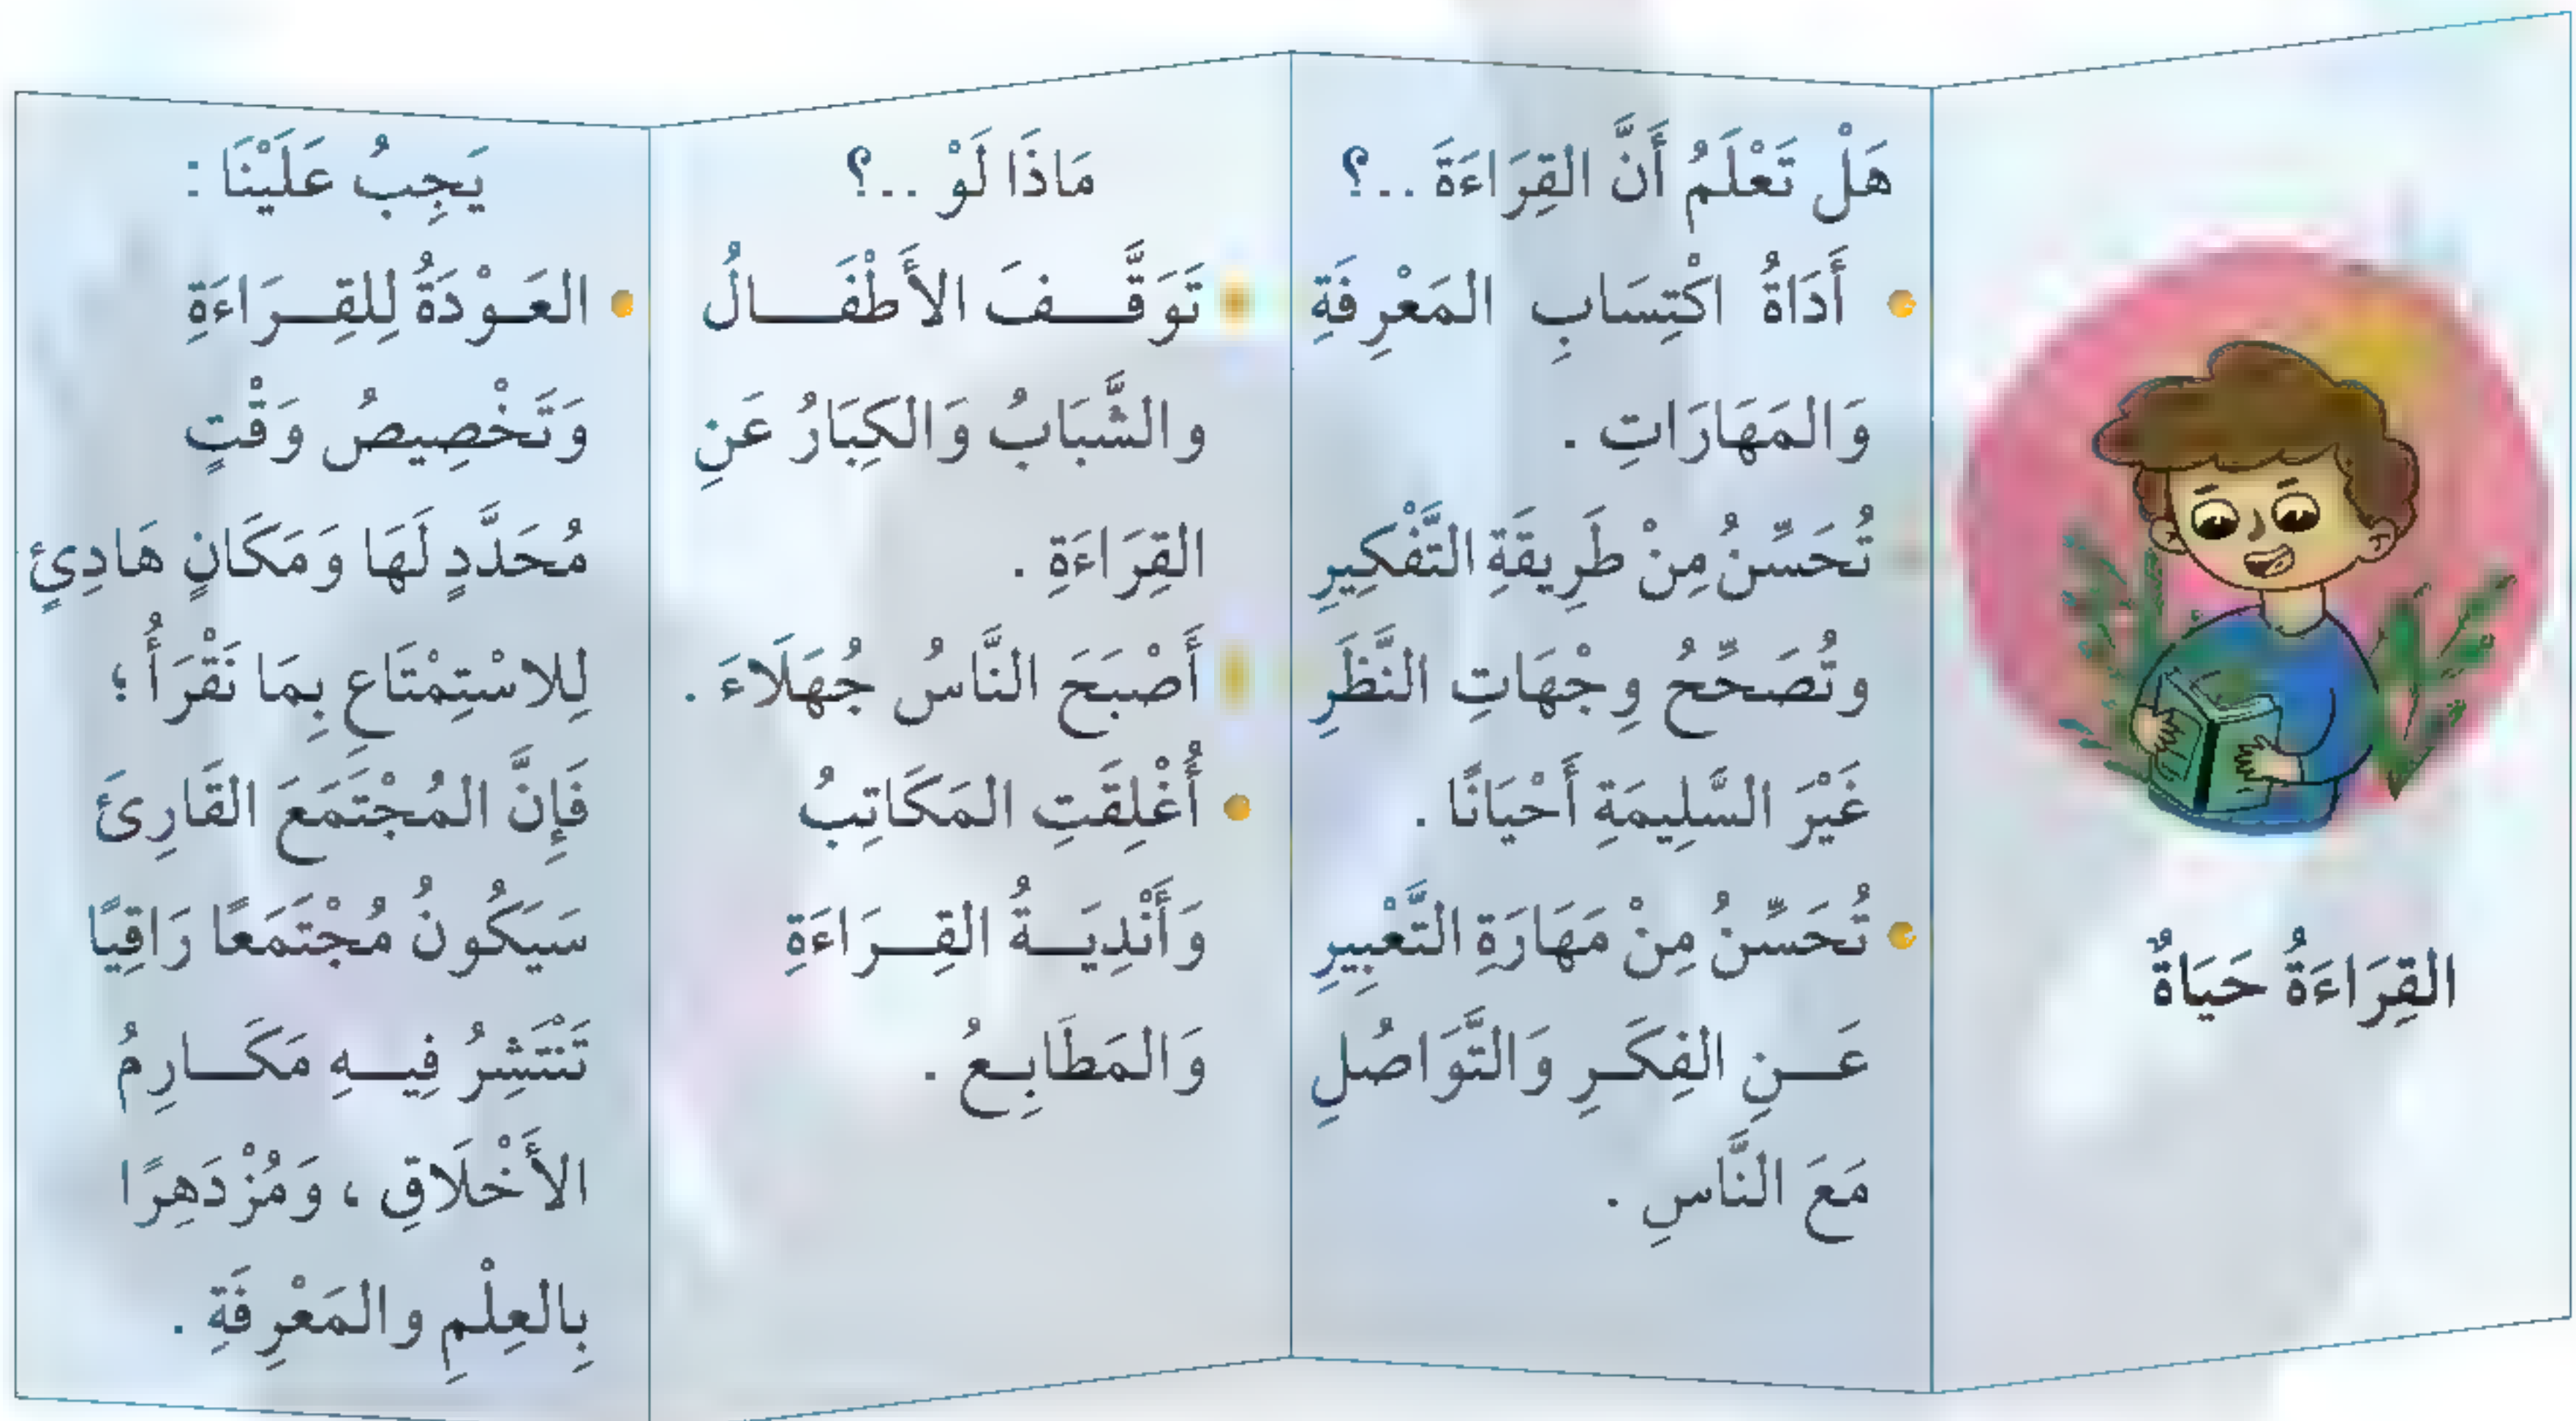 القِرَاءَةُ حَيَاةٌ
هَلْ تَعْلَمُ أَنَّ القِرَاءَةَ ..؟
• أَدَاةُ اكْتِسَابِ المَعْرِفَةِ
وَالمَهَارَاتِ .
تُحَسِّنُ مِنْ طَرِيقَةِ التَّفْكِيرِ
وتُصَحِّحُ وِجْهَاتِ النَّظَرِ
غَيْرَ السَّلِيمَةِ أَحْيَانًا .
• تُحَسِّنُ مِنْ مَهَارَةِ التَّعْبِيرِ
عَــنِ الفِكَــرِ وَالتَّوَاصُلِ
مَعَ النَّاسِ .
مَاذَا لَوْ ..؟
• تَوَقَّــفَ الأَطْفَــالُ
والشَّبَابُ وَالكِبَارُ عَنِ
القِرَاءَةِ .
• أَصْبَحَ النَّاسُ جُهَلَاءَ .
• أُغْلِقَتِ المَكَاتِبُ
وَأَنْدِيَــةُ القِــرَاءَةِ
وَالمَطَابِـعُ .
يَجِبُ عَلَيْنَا :
• العَـوْدَةُ لِلقِــرَاءَةِ
وَتَخْصِيصُ وَقْتٍ
مُحَدَّدٍ لَهَا وَمَكَانٍ هَادِئٍ
لِلاسْتِمْتَاعِ بِمَا نَقْرَأُ ؛
فَإِنَّ المُجْتَمَعَ القَارِئَ
سَيَكُونُ مُجْتَمَعًا رَاقِيًا
تَنْتَشِرُ فِيــهِ مَكَــارِمُ
الأَخْلَاقِ ، وَمُزْدَهِرًا
بِالعِلْمِ والمَعْرِفَةِ .